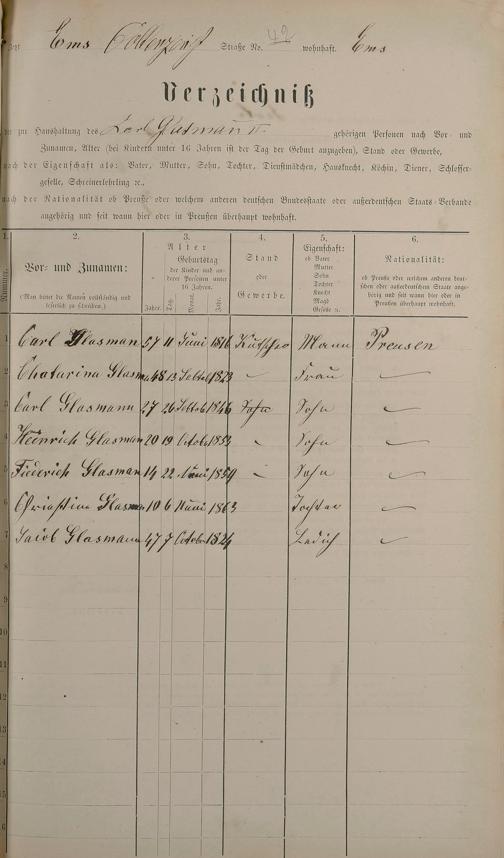 Ems Straße No. 42 wohnhaft. Ems
Verzeichniß
der zur Haushaltung des Carl Glasmann II. gehörigen Personen nach Vor- und
Zunamen, Alter (bei Kindern unter 16 Jahren ist der Tag der Geburt anzugeben), Stand oder Gewerbe,
nach der Eigenschaft als: Vater, Mutter, Sohn, Tochter, Dienstmädchen, Hausknecht, Köchin, Diener, Schlosser-
geselle, Schreinerlehrling ꝛc.,
nach der Nationalität ob Preuße oder welchem anderen deutschen Bundesstaate oder außerdeutschen Staats-Verbande
angehörig und seit wann hier oder in Preußen überhaupt wohnhaft.
1. 2. 3. 4. 5. 6.
Nummer.
Vor- und Zunamen:
(Man bittet die Namen vollständig und leserlich zu schreiben.)
Alter
Geburtstag
der Kinder und an-
derer Personen unter
16 Jahren.
Jahre. Tag. Monat. Jahr.
Stand
oder
Gewerbe.
Eigenschaft:
ob Vater
Mutter
Sohn
Tochter
Knecht
Magd
Geselle ꝛc.
Nationalität:
ob Preuße oder welchem anderen deut-
schen oder außerdeutschen Staate ange-
hörig und seit wann hier oder in
Preußen überhaupt wohnhaft.
1 Carl Glasmann 57 11 Juni 1816 Kutscher Mann Preusen
2 Chatarina Glasmann 48 13 1823 Frau
3 Carl Glasmann 27 26 1846 Sohn Sohn
4 Heinrich Glasmann 20 19 October 1853 Sohn
5 Friederich Glasmann 14 22 1859 Sohn
6 Glasmann 10 6 1863 Tochter
7 Jacob Glasmann 47 7 October 1824 Ledich
10
11
12
13